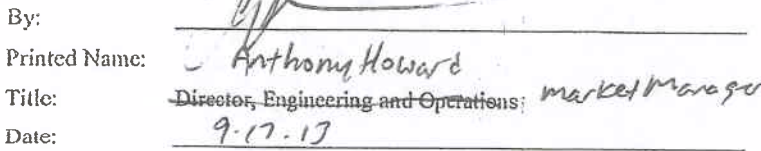 By:
Printed Name: Anthony Howard
Title: Director, Engineering and Operations; market Manager
Date: 9.17.13